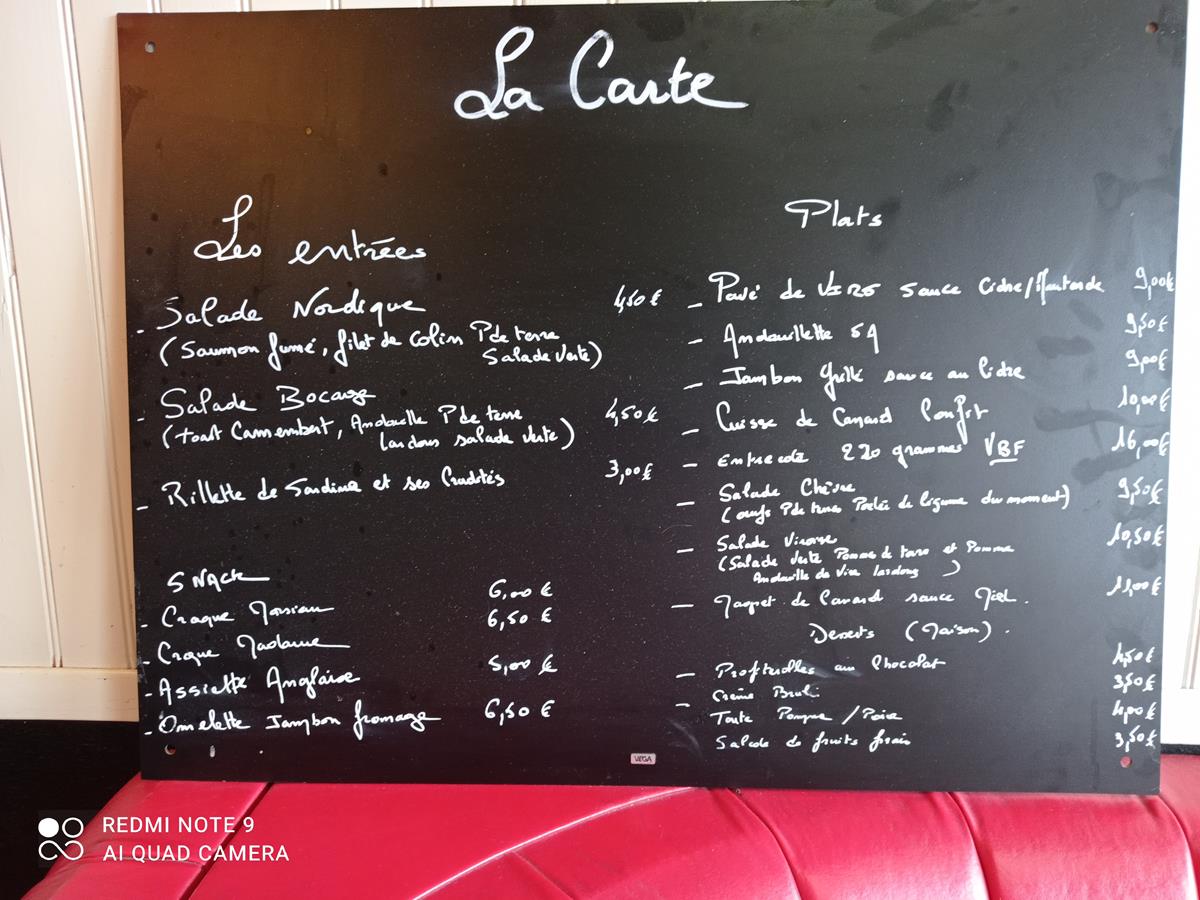 La Carte
Les entrées
- Salade Nordique 4,50 €
(Saumon fumé, filet de colin P de terre
Salade verte)
- Salade Bocage 4,50 €
(toast Camembert, Andouille P de terre
lardons salade verte)
- Rillette de Sardine et ses Crudités 3,00 €
SNACK
- Croque Monsieur 6,00 €
- Croque Madame 6,50 €
- Assiette Anglaise 5,00 €
- Omelette Jambon fromage 6,50 €
Plats
- Pavé de sauce Cidre/Moutarde 9,00 €
- Andouillette 5A 9,50 €
- Jambon Grillé sauce au cidre 9,00 €
- Cuisse de Canard Confit 10,00 €
- Entrecote 220 grammes VBF 16,00 €
- Salade Chèvre 9,50 €
(oeufs P de terre Poelée de légume du moment)
- Salade Viroise 10,50 €
(Salade verte Pomme de terre et Pomme
Andouille de Vire lardons)
- Magret de Canard sauce Miel. 11,00 €
Desserts (Maison).
- Profiterolles au Chocolat 4,50 €
- Crème Brulé 3,50 €
Tarte Pomme / Poire 4,00 €
Salade de fruits frais 3,50 €
VEGA
REDMI NOTE 9
AI QUAD CAMERA